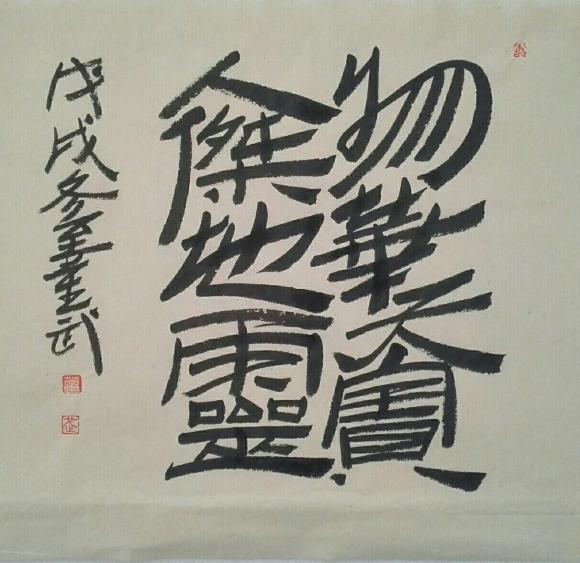 物華天寶
人傑地靈
戊戌冬至董武